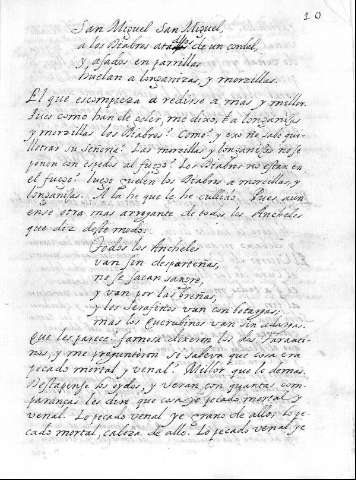 10
San Miguel San Miguel,
a los Diabros atados de un cordel,
y asados en parrillas
huelan a longanizas y morzillas.
El que escompieza à redirse a mas y millor.
Pues como han de goler, me dixo, à longanisas
y morzillas los Diabros? Como? y eso no sabe qui-
llotras su Señoria? Las morzillas y longanisas no se
ponen con espedos al fuego? Los Diabros no estan en
el fuego? luego guelen los Diabros a morzillas, y
longanisas. A la he que lo cuerdo. Pues aun
ense otra mas arrogante de todos los Ancheles
que diz deste modo:
Todos los Ancheles
van sin desparteñas,
no se sacan sangre,
y van por las breñas,
y los Serafines van con botargas;
mas los Querubines van sin adargas.
Que les parece? famosa dixeron los dos Taraci-
nos, y me preguntoron si sabeva que cosa era
pecado mortal y venal? Millor que lo demas.
Destapense los oydos, y veran con quantas com-
paranças les dire que cosa ye pecado mortal y
venal. Lo pecado venal ye crano de allos: lo pe-
cado mortal, cabeza de allo. Lo pecado venal ye